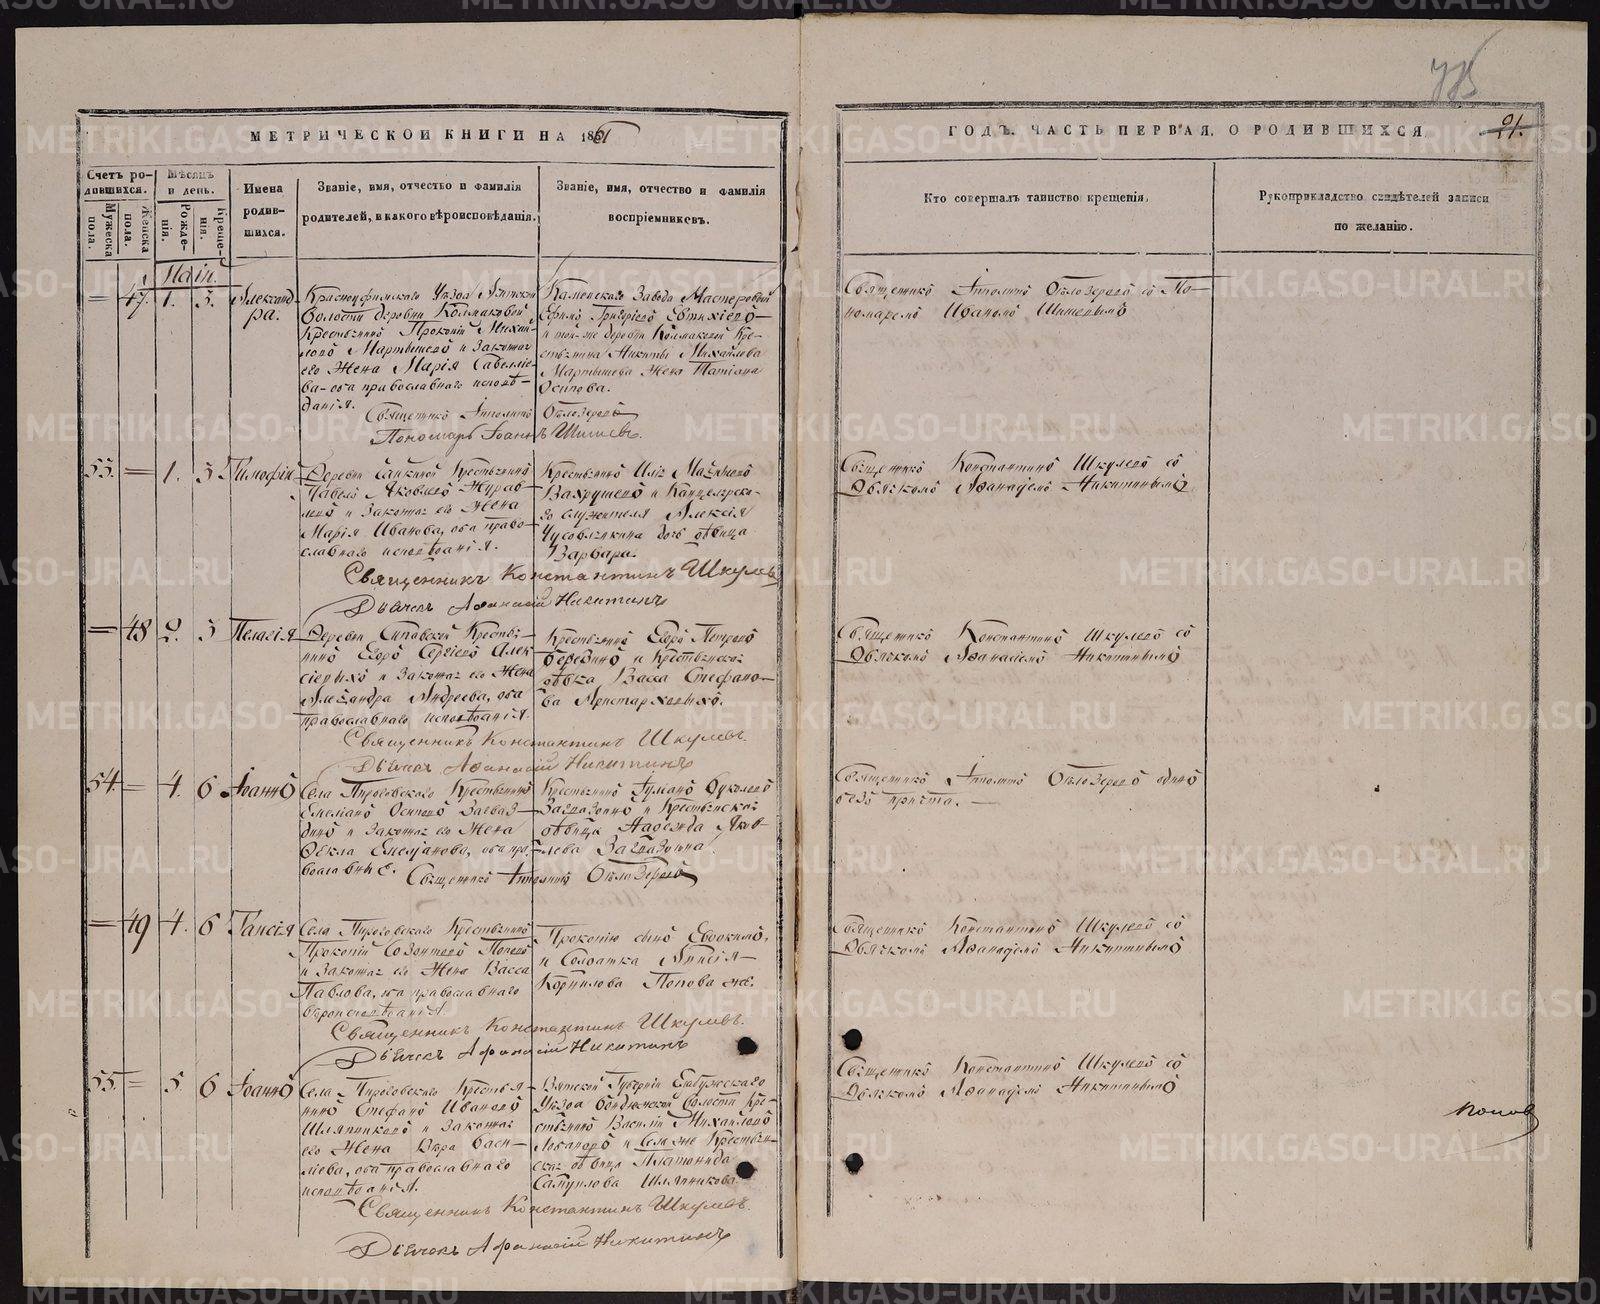 МЕТРИЧЕСКОЙ КНИГИ НА 1861
Счетъ родившихся.
Мужеска пола.
Женска пола.
Мѣсяцъ и день.
Рожденія.
Крещенія.
Имена родившихся.
Званіе, имя, отчество и фамилія
родителей, и какого вѣроисповѣданія.
Званіе, имя, отчество и фамилія
воспріемниковъ.
Маія.
47. 1. 3. Александра.
Красноуфимскаго Уѣзда
волости деревни Колмаковой
Крестьянинъ Прокопій Михайловъ
Мартышевъ и Законная
его Жена Марія Савельева
оба православнаго исповѣданія.
Каменскаго Завода Мастеровой
Ефимъ Григорьевъ Евтихіевъ
и той-же деревни Колмаковой Крестьянина
Никиты Михайлова
Мартышева Жена Татіана
Осипова.
Священникъ Ипполитъ Бѣлозеровъ
Пономарь Іоаннъ Шишевъ.
53. 1. 3 Тимофій
Деревни Крестьянинъ
Павелъ Яковлевъ Журавлевъ
и Законная его Жена
Марія Иванова, оба православнаго
исповѣданія.
Крестьянинъ Илія
Вахрушевъ и Канцелярскаго
служителя Алексія
дочь дѣвица
Варвара.
Священникъ Константинъ Шкулевъ
Дьячекъ Афанасій Никитинъ
48 2. 3 Пелагія
Деревни Крестьянинъ
Егоръ Сергіевъ
и Законная его Жена
Александра Андреева, оба
православнаго исповѣданія.
Крестьянинъ Егоръ Петровъ
Березинъ и Крестьянская
дѣвка Васса Стефанова
Аристарховыхъ.
Священникъ Константинъ Шкулевъ.
Дьячекъ Афанасій Никитинъ
54. 4. 6 Іоаннъ
Села Крестьянинъ
Емеліанъ Осиповъ
и Законная его Жена
Ѳекла Емельянова, оба православные.
Крестьянинъ
и Крестьянская
дѣвица Надежда Яковлева
Священникъ Ипполитъ Бѣлозеровъ
49 4. 6 Таисія
Села Крестьянинъ
Прокопій Созонтовъ Поповъ
и Законная его Жена Васса
Павлова, оба православнаго
вѣроисповѣданія.
Прокопію сынъ Евдокимъ,
и Солдатка Анисія
Корнилова Попова же.
Священникъ Константинъ Шкулевъ.
Дьячекъ Афанасій Никитинъ
55. 5. 6 Іоаннъ
Села Крестьянинъ
Стефанъ Ивановъ
Шляпниковъ и Законная
его Жена Вѣра Васильева,
оба православнаго
исповѣданія.
Вятской Губерніи Елабужскаго
Уѣзда Бондюжской волости Крестьянинъ
Василій Михайловъ
и Села же Крестьянская
дѣвица Платонида
Самуилова Шляпникова.
Священникъ Константинъ Шкулевъ.
Дьячекъ Афанасій Никитинъ
ГОДЪ. ЧАСТЬ ПЕРВАЯ, О РОДИВШИХСЯ.
21.
Кто совершалъ таинство крещенія.
Рукоприкладство свидѣтелей записи
по желанію.
Священникъ Ипполитъ Бѣлозеровъ съ Пономаремъ
Иваномъ Шишевымъ
Священникъ Константинъ Шкулевъ съ
Дьячкомъ Афанасіемъ Никитинымъ
Священникъ Константинъ Шкулевъ съ
Дьячкомъ Афанасіемъ Никитинымъ
Священникъ Ипполитъ Бѣлозеровъ одинъ
безъ причта.
Священникъ Константинъ Шкулевъ съ
Дьячкомъ Афанасіемъ Никитинымъ
Священникъ Константинъ Шкулевъ съ
Дьячкомъ Афанасіемъ Никитинымъ
Поповъ
METRIKI.GASO-URAL.RU